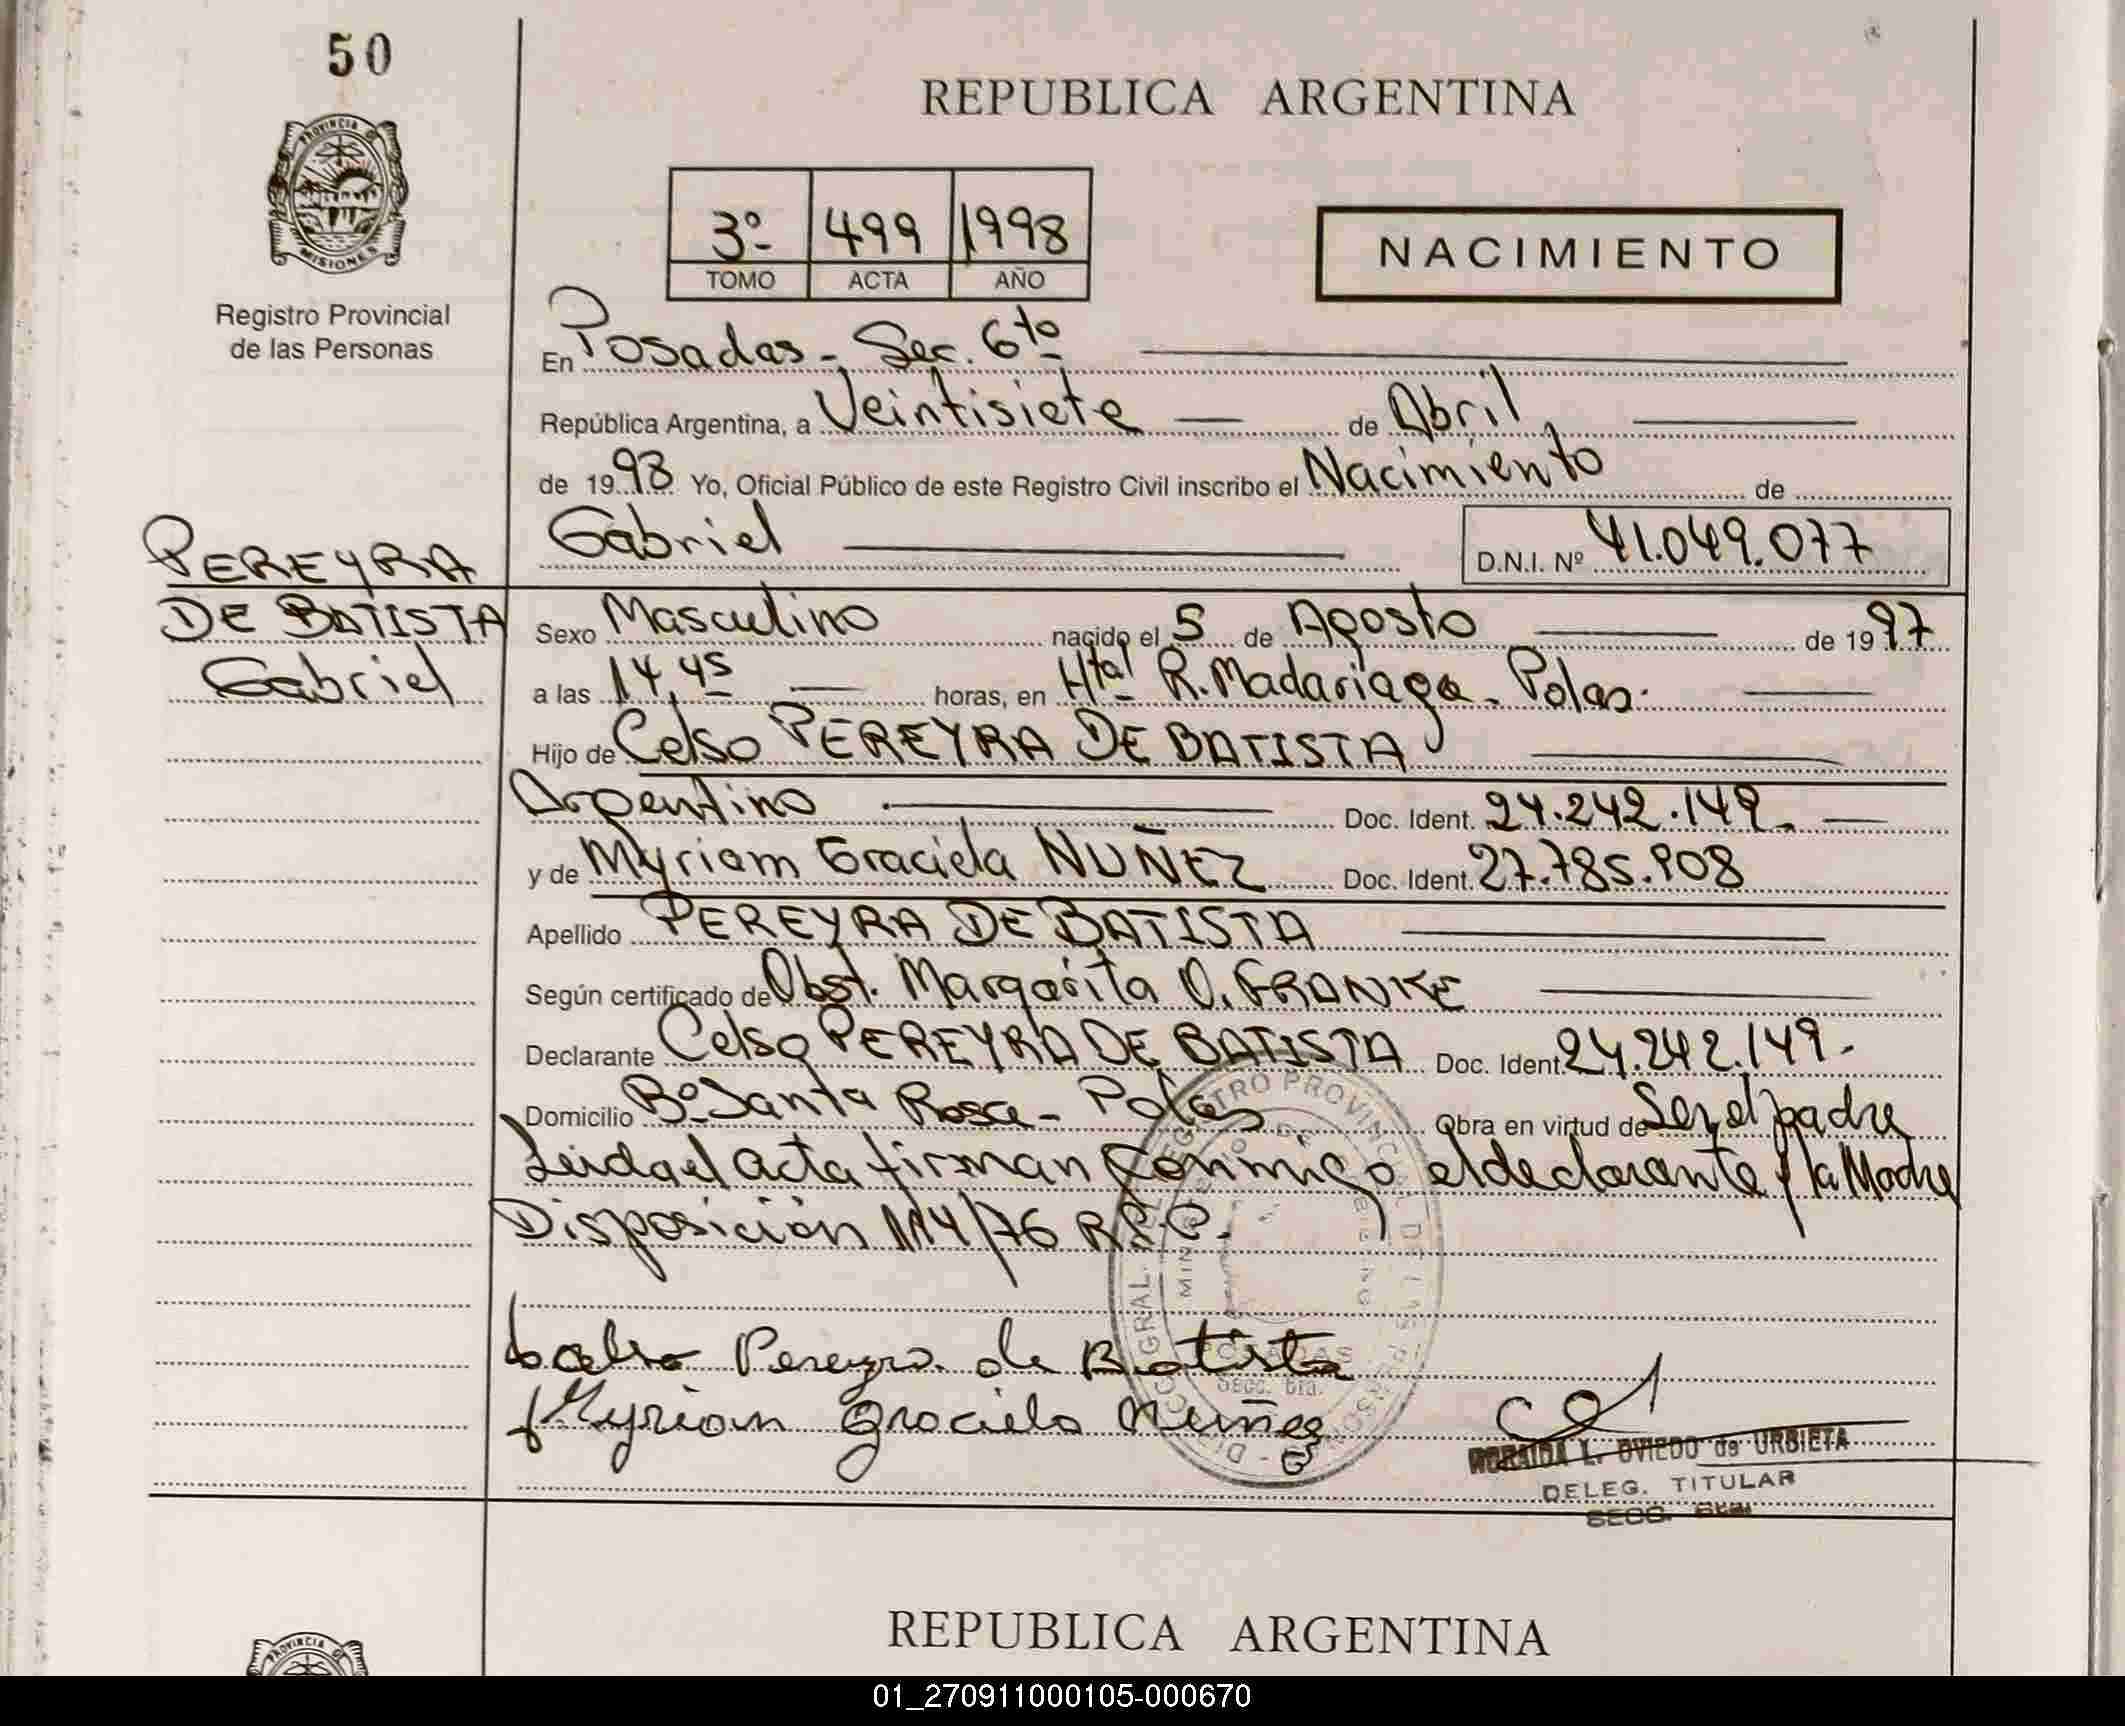 50
REPUBLICA ARGENTINA
PROVINCIA DE
MISIONES
Registro Provincial
de las Personas
3º 499 1998
TOMO ACTA AÑO
NACIMIENTO
En Posadas - Sec. 6to
República Argentina, a Veintisiete de Abril
de 1998 Yo, Oficial Público de este Registro Civil inscribo el Nacimiento de
Gabriel D.N.I. Nº 41.049.077
PEREYRA
DE BATISTA
Gabriel
Sexo Masculino nacido el 5 de Agosto de 1997
a las 14,45 horas, en Htal R. Madariaga - Pdas.
Hijo de Celso PEREYRA DE BATISTA
Argentino Doc. Ident. 24.242.149.
y de Myriam Graciela NUÑEZ Doc. Ident. 27.785.908
Apellido PEREYRA DE BATISTA
Según certificado de Obst. Margarita O. FRANKE
Declarante Celso PEREYRA DE BATISTA Doc. Ident. 24.242.149.
Domicilio Bº Santa Rosa - Pdas Obra en virtud de Ser el padre
Leida el acta firman conmigo el declarante y la Madre
Disposición 114/76 R.P.P.
Celso Pereyra de Batista
Myriam Graciela Nuñez
REGISTRO PROVINCIAL DE LAS PERSONAS
POSADAS
Secc. 6ta.
L. OVIEDO de URBIETA
DELEG. TITULAR
SECC. 6ta.
REPUBLICA ARGENTINA
PROVINCIA DE
01_270911000105-000670